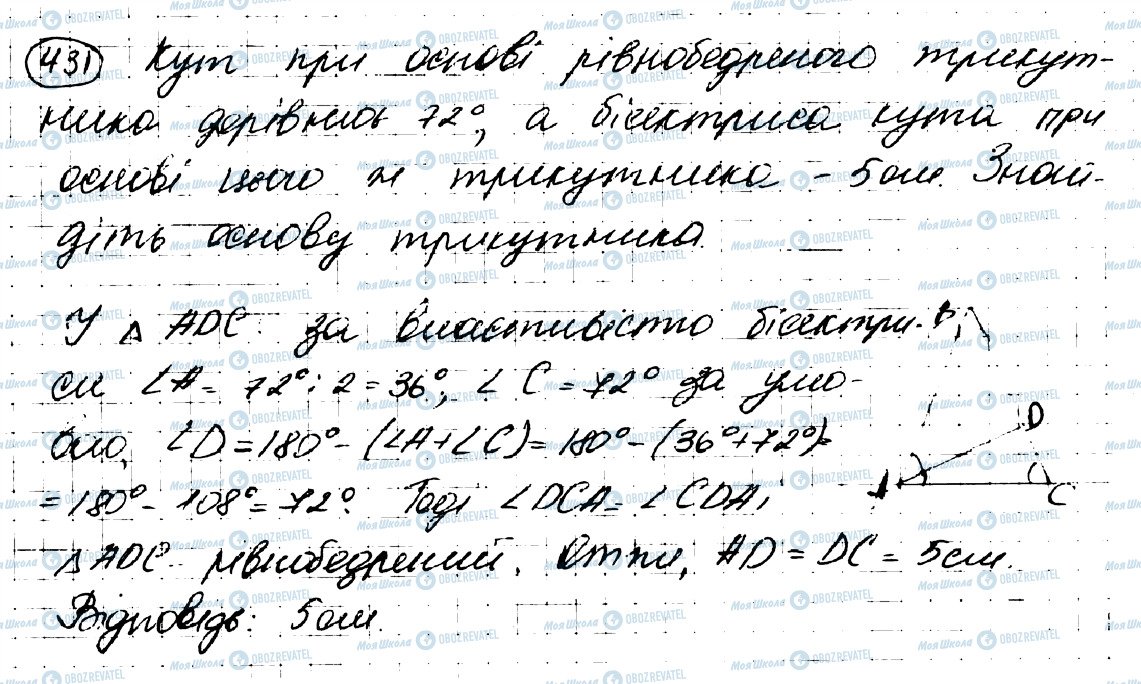 431 Кут при основі рівнобедреного трикут-
ника дорівнює 72°, а бісектриса кута при
основі цього ж трикутника - 5 см. Знай-
діть основу трикутника.
У △ ADC за властивістю бісектри- B
си ∠A = 72° : 2 = 36°, ∠ C = 72° за умо-
вою, ∠D = 180° - (∠A + ∠C) = 180° - (36° + 72°) =
= 180° - 108° = 72°. Тоді ∠DCA = ∠CDA і
△ ADC рівнобедрений. Отже, AD = DC = 5 см.
Відповідь: 5 см.
D
A
C
Моя Школа OBOZREVATEL